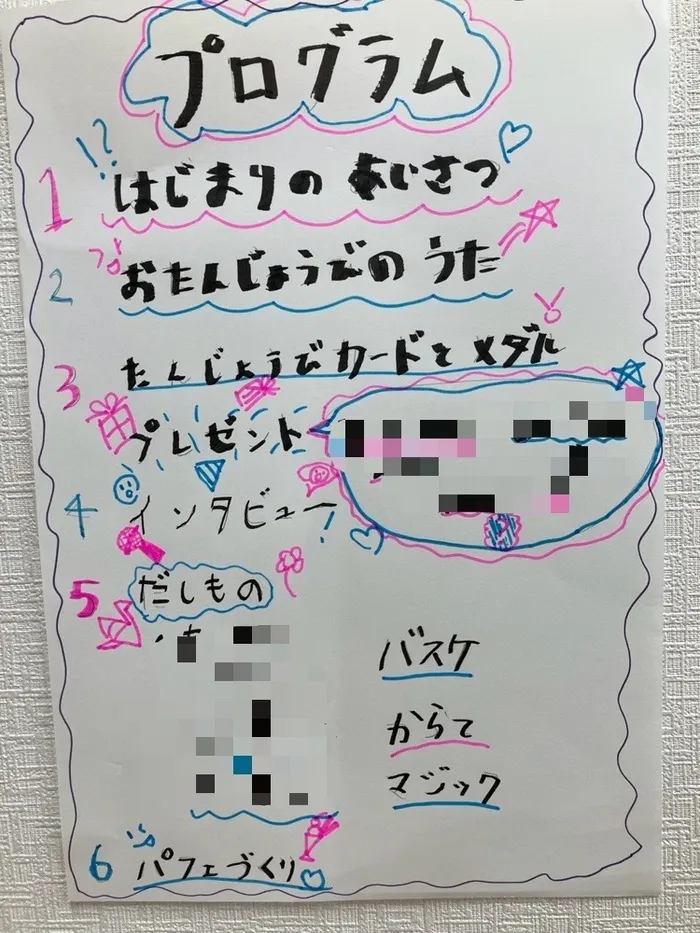 プログラム
!?
1 はじまりの あいさつ
2 おたんじょうびの うた
3 たんじょうびカードと メダル
プレゼント
4 インタビュー
5 だしもの
バスケ
からて
マジック
6 パフェづくり